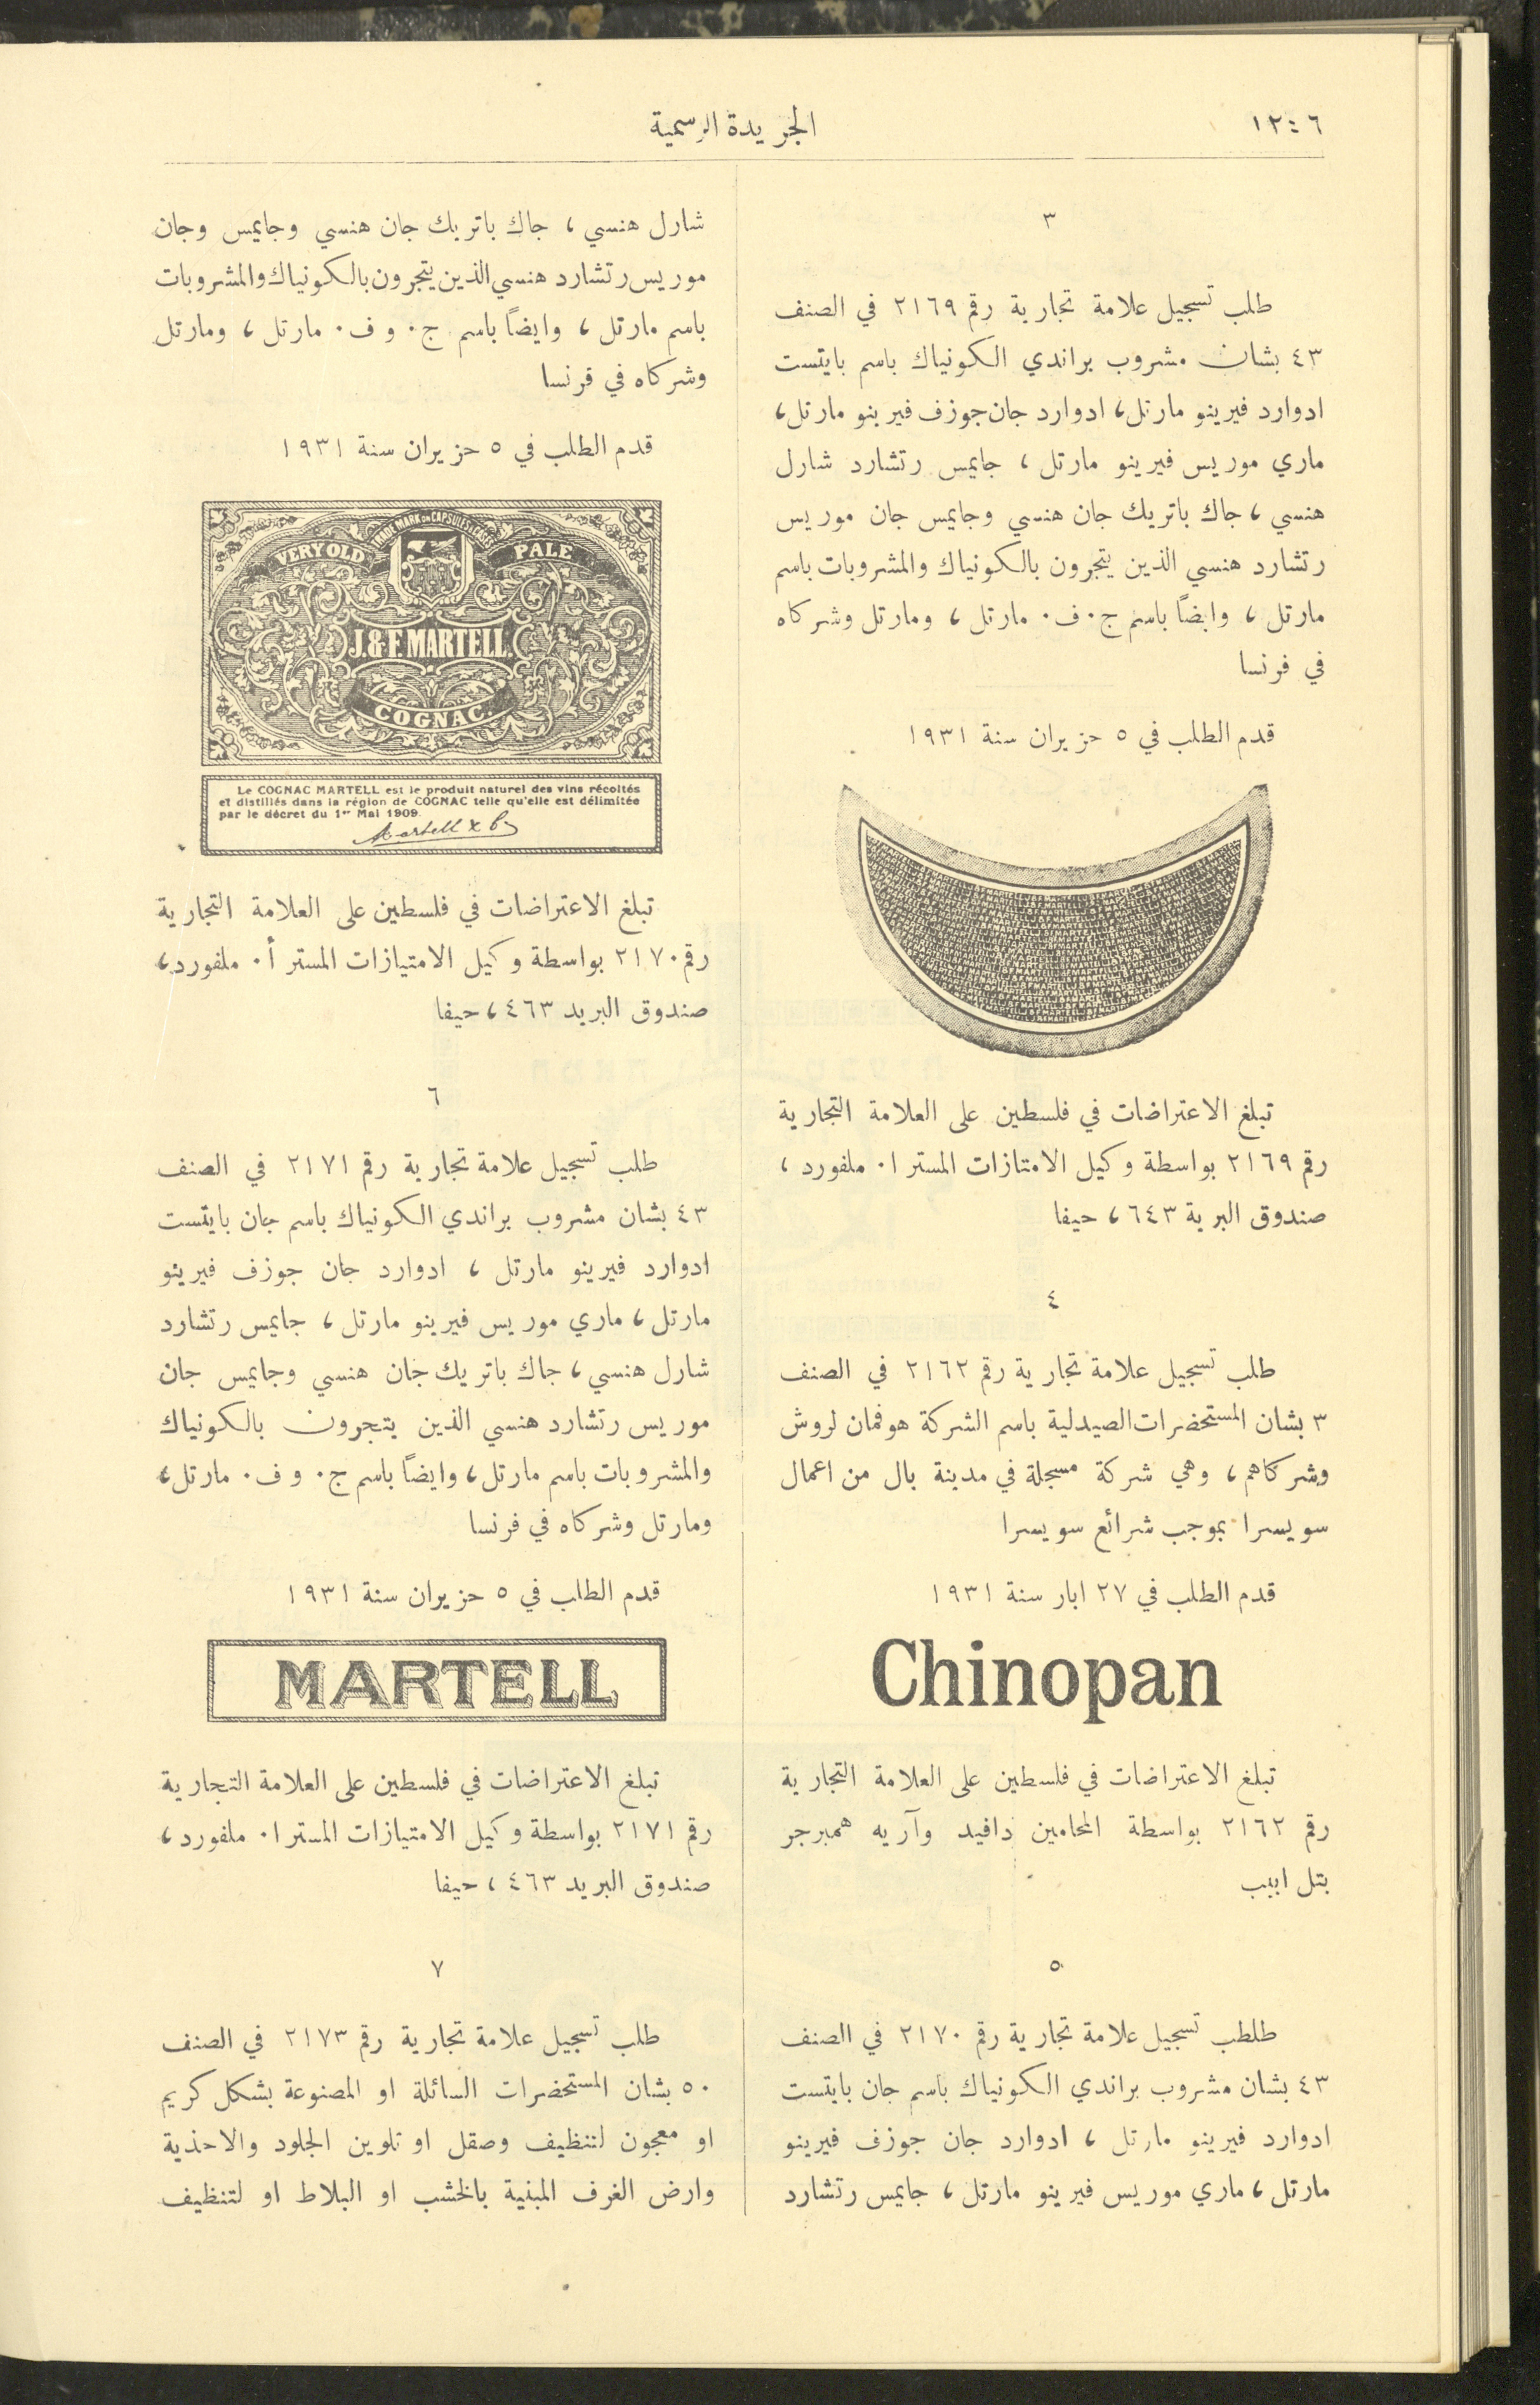 ١٢٤٦
الجريدة الرسمية
٣
طلب تسجيل علامة تجارية رقم ٢١٦٩ في الصنف
٤٣ بشان مشروب براندي الكونياك باسم بايتست
ادوارد فيرينو مارتل، ادوارد جان جوزف فيرينو مارتل،
ماري موريس فيرينو مارتل، جايمس رتشارد شارل
هنسي، جاك باتريك جان هنسي وجايمس جان موريس
رتشارد هنسي الذين يتجرون بالكونياك والمشروبات باسم
مارتل، وايضاً باسم ج. ف. مارتل، ومارتل وشركاه
في فرنسا
قدم الطلب في ٥ حزيران سنة ١٩٣١
تبلغ الاعتراضات في فلسطين على العلامة التجارية
رقم ٢١٦٩ بواسطة وكيل الامتازات المستر ا. ملفورد،
صندوق البرية ٦٤٣، حيفا
٤
طلب تسجيل علامة تجارية رقم ٢١٦٢ في الصنف
٣ بشان المستحضرات الصيدلية باسم الشركة هوفمان لروش
وشركاهم، وهي شركة مسجلة في مدينة بال من اعمال
سويسرا بموجب شرائع سويسرا
قدم الطلب في ٢٧ ابار سنة ١٩٣١
Chinopan
تبلغ الاعتراضات في فلسطين على العلامة التجارية
رقم ٢١٦٢ بواسطة المحامين دافيد وآريه همبرجر
بتل ابيب
٥
طلطب تسجيل علامة تجارية رقم ٢١٧٠ في الصنف
٤٣ بشان مشروب براندي الكونياك باسم جان بايتست
ادوارد فيرينو مارتل، ادوارد جان جوزف فيرينو
مارتل، ماري موريس فيرينو مارتل، جايمس رتشارد
شارل هنسي، جاك باتريك جان هنسي وجايمس وجان
موريس رتشارد هنسي الذين يتجرون بالكونياك والمشروبات
باسم مارتل، وايضاً باسم ج. و ف. مارتل، ومارتل
وشركاه في فرنسا
قدم الطلب في ٥ حزيران سنة ١٩٣١
TRADE MARK ON CAPSULES & CASES
VERY OLD PALE
J. & F. MARTELL.
COGNAC.
Le COGNAC MARTELL est le produit naturel des vins récoltés
et distillés dans la région de COGNAC telle qu'elle est délimitée
par le décret du 1er Mai 1909.
Martell & Co
تبلغ الاعتراضات في فلسطين على العلامة التجارية
رقم ٢١٧٠ بواسطة وكيل الامتيازات المستر أ. ملفورد،
صندوق البريد ٤٦٣، حيفا
٦
طلب تسجيل علامة تجارية رقم ٢١٧١ في الصنف
٤٣ بشان مشروب براندي الكونياك باسم جان بايتست
ادوارد فيرينو مارتل، ادوارد جان جوزف فيرينو
مارتل، ماري موريس فيرينو مارتل، جايمس رتشارد
شارل هنسي، جاك باتريك جان هنسي وجايمس جان
موريس رتشارد هنسي الذين يتجرون بالكونياك
والمشروبات باسم مارتل، وايضاً باسم ج. و ف. مارتل،
ومارتل وشركاه في فرنسا
قدم الطلب في ٥ حزيران سنة ١٩٣١
MARTELL
تبلغ الاعتراضات في فلسطين على العلامة التجارية
رقم ٢١٧١ بواسطة وكيل الامتيازات المستر ا. ملفورد،
صندوق البريد ٤٦٣، حيفا
٧
طلب تسجيل علامة تجارية رقم ٢١٧٣ في الصنف
٥٠ بشان المستحضرات السائلة او المصنوعة بشكل كريم
او معجون لتنظيف وصقل او تلوين الجلود والاحذية
وارض الغرف المبنية بالخشب او البلاط او لتنظيف